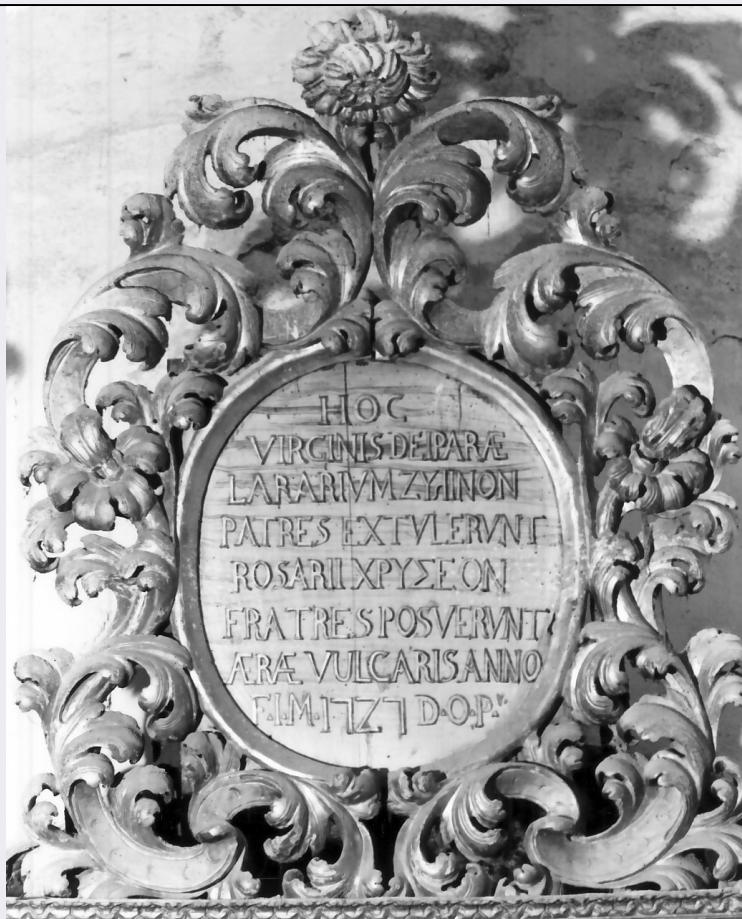 HOC
VIRGINIS DEIPARÆ
LARARIVM ZYΛINON
PATRES EXTVLERVNT
ROSARII XPYΣEON
FRATRES POSVERVNT
ÆRÆ VULGARIS ANNO
F.I.M.1727 D.O.P.